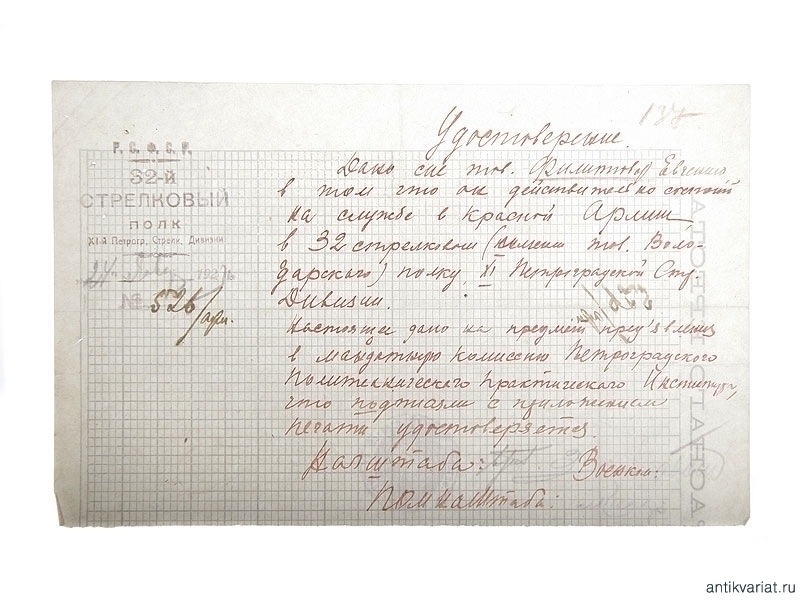 137
Удостоверение.
Р. С. Ф. С. Р.
32-й
СТРЕЛКОВЫЙ
ПОЛК
XI-й Петрогр. Стрелк. Дивизии.
24
192
№ 526/
Дано сие тов. Филиппову Евгению
в том что он действительно состоит
на службе в Красной Армии
в 32 стрелковом (имени тов. Воло-
дарского) полку, XI Петроградской Стр.
Дивизии.
Настоящее дано на предмет пред'явления
в мандатную комиссию Петроградского
Политехнического практического Института,
что подписями с приложением
печати удостоверяется.
Наштаба:
Военком:
Помнаштаба:
antikvariat.ru